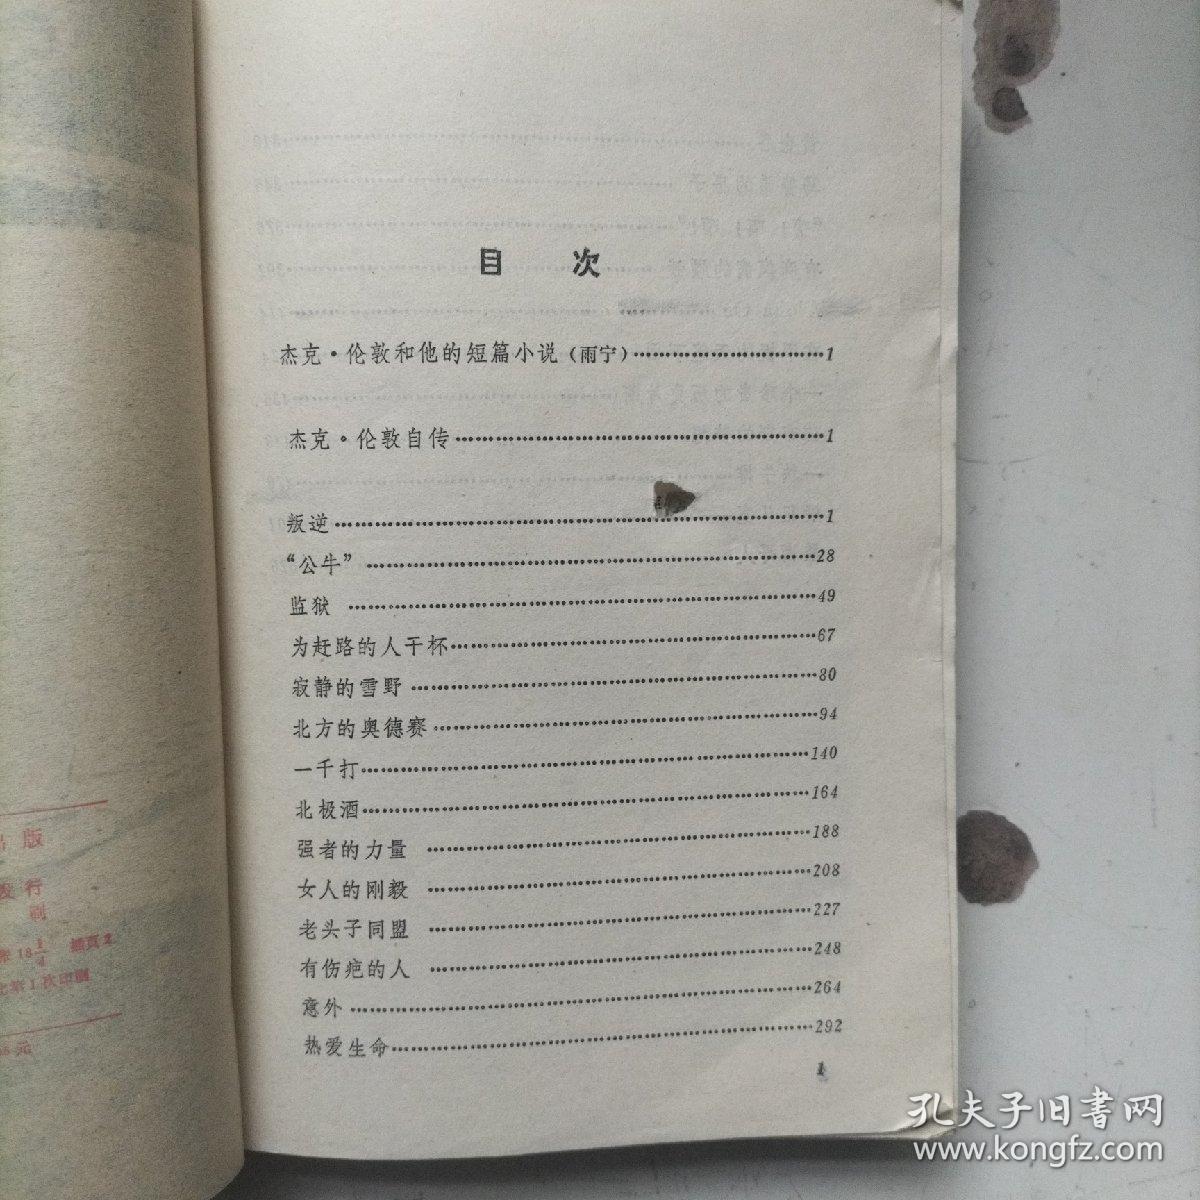 目 次
杰克·伦敦和他的短篇小说（雨宁）…………………………1
杰克·伦敦自传…………………………1
叛逆…………………………1
“公牛”…………………………28
监狱…………………………49
为赶路的人干杯…………………………67
寂静的雪野…………………………80
北方的奥德赛…………………………94
一千打…………………………140
北极酒…………………………164
强者的力量…………………………188
女人的刚毅…………………………208
老头子同盟…………………………227
有伤疤的人…………………………248
意外…………………………264
热爱生命…………………………292
1
版
发行
刷
18 1/4 插页 2
第1次印刷
元
孔夫子旧书网
www.kongfz.com